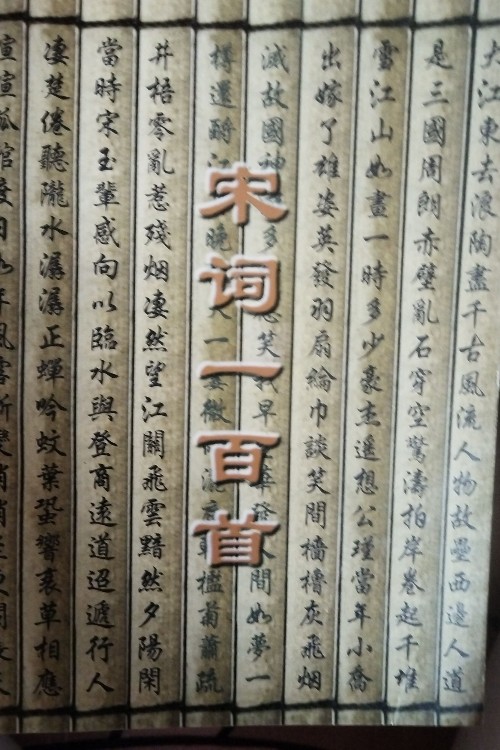 宋词一百首
大江東去浪陶盡千古風流人物故壘西邊人道
是三國周朗赤壁亂石穿空驚濤拍岸卷起千堆
雪江山如畫一時多少豪杰遥想公瑾當年小喬
出嫁了雄姿英發羽扇綸巾談笑間檣櫓灰飛烟
滅故國神多笑我早華發人間如夢一
樽還酹江晚天一微檻菊蕭疏
井梧零亂惹殘烟凄然望江關飛雲黯然夕陽閑
當時宋玉輩感向以臨水與登商遠道迢遞行人
凄楚倦聽隴水潺潺正蟬吟蚊葉蛩響衰草相應